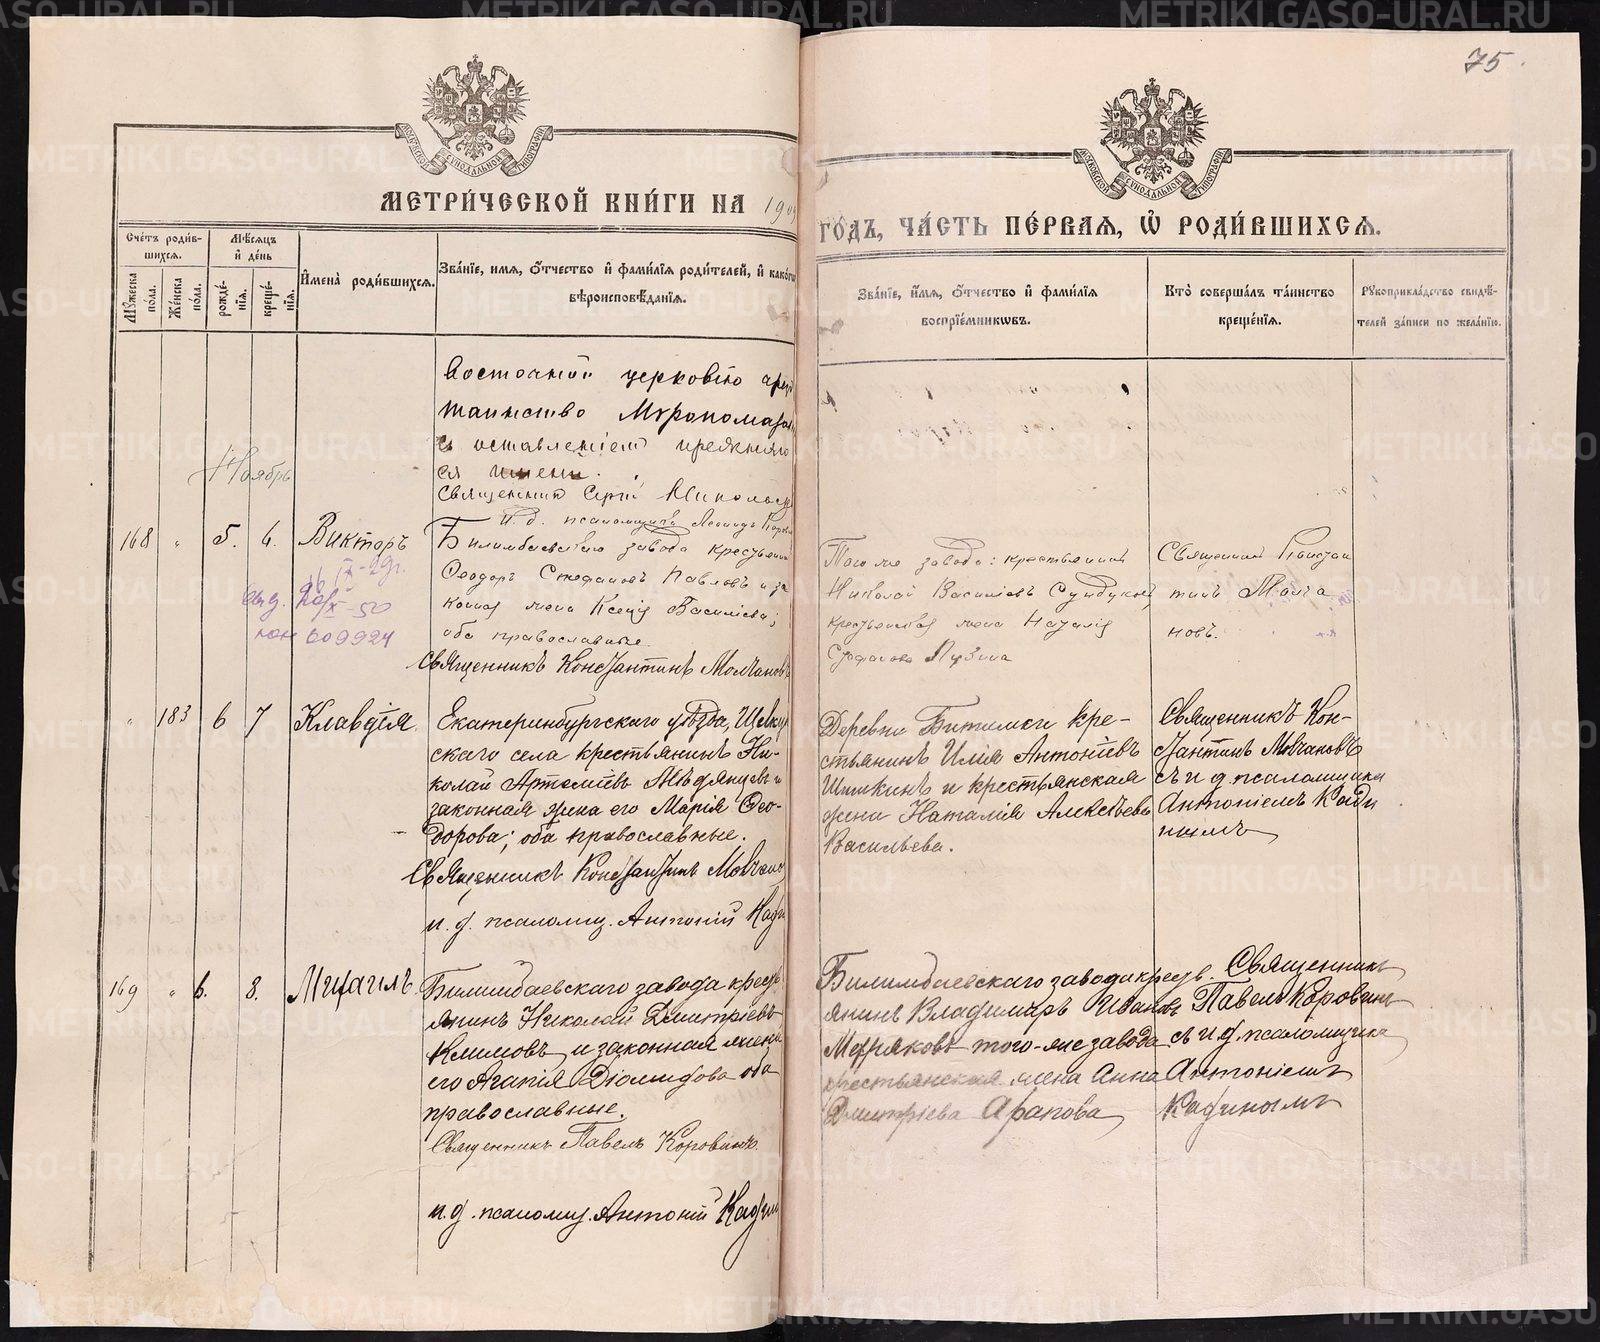 75
МОСКОВСКОЙ СѴНОДАЛЬНОЙ ТИПОГРАФІИ
МОСКОВСКОЙ СѴНОДАЛЬНОЙ ТИПОГРАФІИ
МЕТРИ́ЧЕСКОЙ КНИ́ГИ НА 190
ГО́ДЪ, ЧА́СТЬ ПЕ́РВАЯ, Ѡ҆ РОДИ́ВШИХСЯ.
Сче́тъ роди́в-
шихся.
Мѣ́сяцъ
и҆ де́нь
Мꙋ́жеска
по́ла.
Же́нска
по́ла.
рожде́-
нїя.
креще́-
нїя.
И҆мена̀ роди́вшихся.
Зва́нїе, и҆мя, о҆́тчество и҆ фами́лїя роди́телей, и҆ како́гѡ
вѣроисповѣ́данїя.
Зва́нїе, и҆́мя, о҆́тчество и҆ фами́лїя
воспрїе́мникѡвъ.
Кто̀ соверша́лъ та́инство
креще́нїя.
Рꙋкоприкла́дство свидѣ́-
телей за́писи по жела́нїю.
восточной церковію
таинство Мѵропомаза
съ оставленіемъ прежняго
ея имени.
Священник Сергій Никольск
Ноябрь
И. д. псаломщика Леонидъ
168 " 5. 6. Викторъ
Билимбаевскаго завода крестьянин
Ѳеодоръ Стефановъ Павловъ и за
конная жена Ксенія Василіева;
оба православные.
Священникъ Константинъ Молчановъ
IX-29г.
выд. 20/X-50
609924
Того же завода: крестьянинъ
Николай Василіевъ
крестьянская жена Наталія
Стефанова
Священник Констан
тинъ Молча
новъ.
" 183 6 7 Клавдія.
Екатеринбургскаго уѣзда,
скаго села крестьянинъ Ни-
колай Артеміевъ Медянцевъ и
законная жена его Марія Ѳео-
дорова; оба православные.
Священникъ Константинъ Молчано
и. д. псаломщ. Антоній Кади
Деревни Битимки кре-
стьянинъ Илія Антоніевъ
Шишкинъ и крестьянская
жена Наталія Алексѣева
Васильева.
Священникъ Кон-
стантинъ Молчановъ
съ и д. псаломщика
Антоніемъ Кади
нымъ
169 " 6. 8. Михаилъ.
Билимбаевскаго завода крест
янинъ Николай Дмитріевъ
Климовъ и законная жена
его Агапія Діомидова оба
православные.
Священникъ Павелъ Коровинъ.
и. д. псаломщ. Антоній Кадин
Билимбаевскаго завода крест
янинъ Владиміръ Ивановъ
Мезряковъ того-же завода
крестьянская жена Анна
Дмитріева Арапова
Священникъ
Павелъ Коровинъ
съ и. д. псаломщика
Антоніемъ
Кадинымъ
METRIKI.GASO-URAL.RU